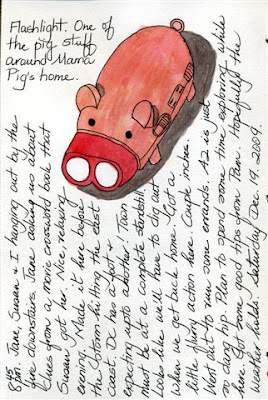 Flashlight. One of
the pig stuff
around Mama
Pig's home.
8:45 pm. Jane, Susan & I hanging out by the
fire downstairs. Jane asking us about
clues from a movie crossword book that
Susan got her. Nice, relaxing
evening. Made it here before
the storm hitting the east
coast. DC has a foot &
expecting upto another! Town
must be at a complete standstill.
Looks like we'll have to dig out
when we get back home. Got a
little flurry action here. Couple inches.
Went out to run some errands. A2 is just
so dang hip. Plan to spend some time exploring while
here. Got some good tips from Pam. Hopefully the
weather holds. Saturday Dec. 19, 2009.